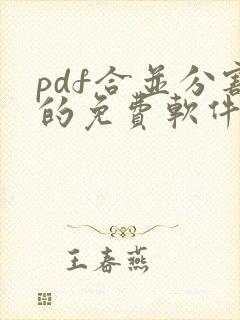 pdf合並分割
的免費軟件
王春燕